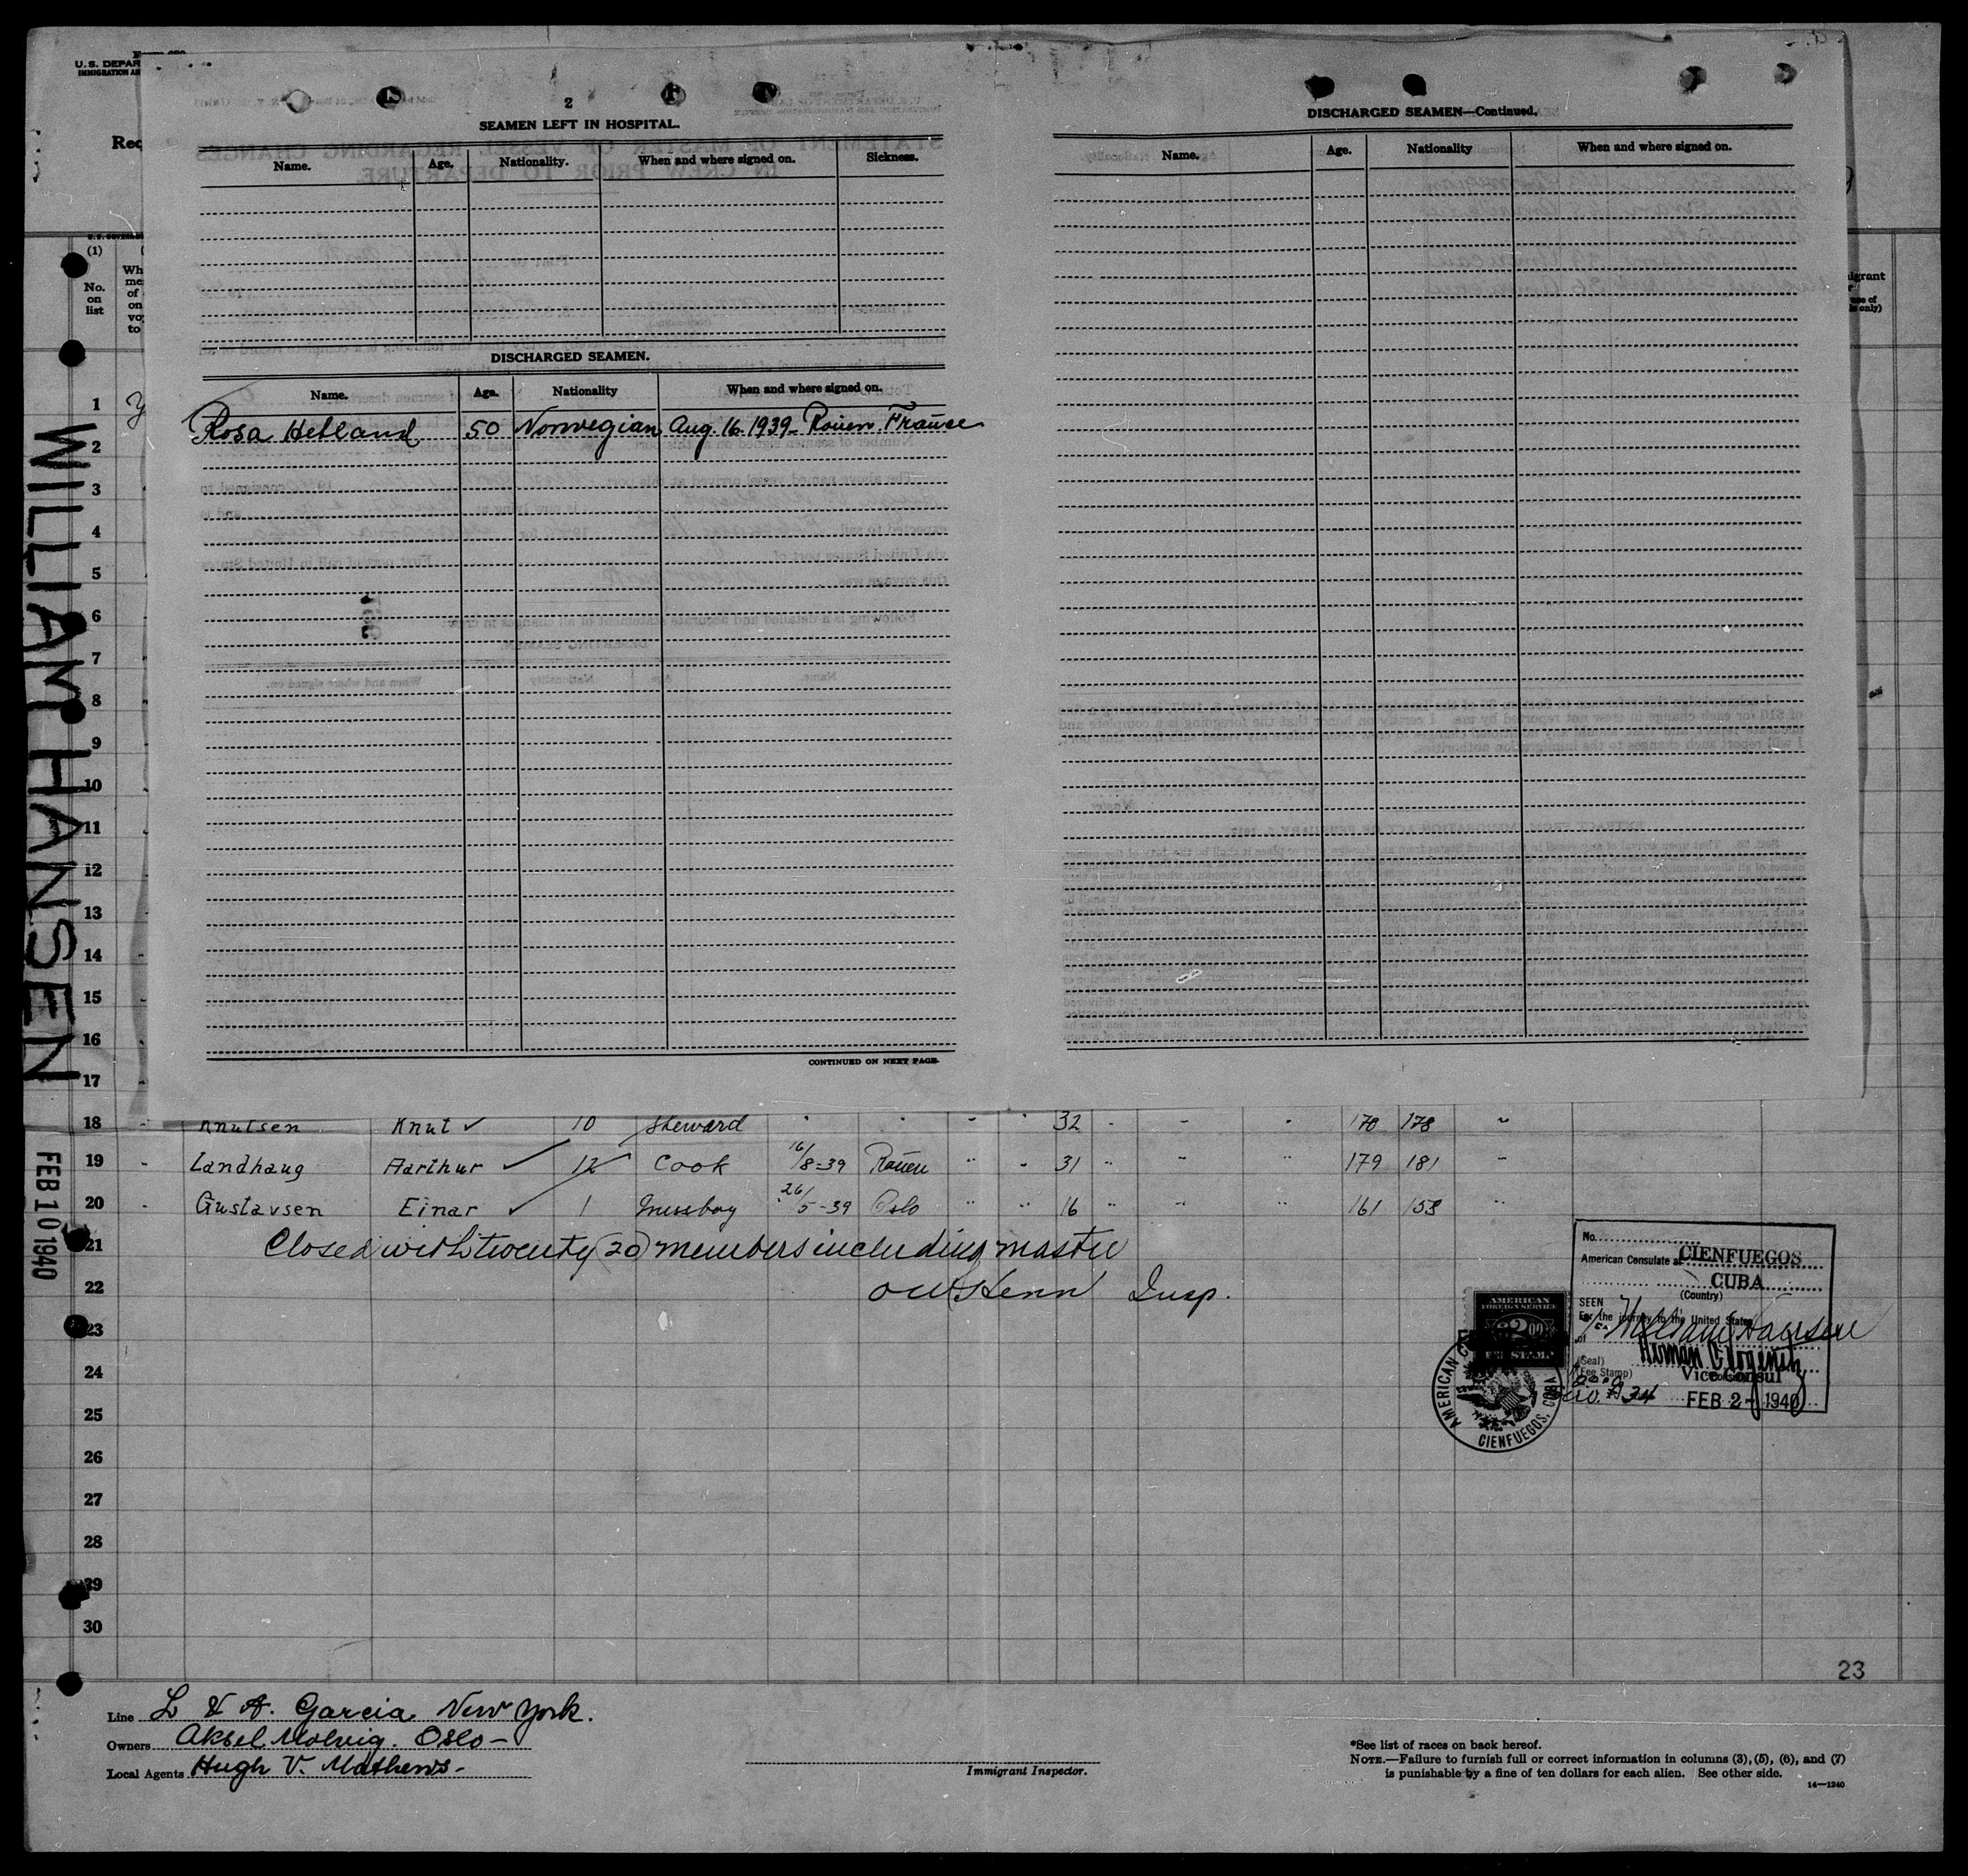 U.S. DEPAR
IMMIGRATION AN
Req
2
SEAMEN LEFT IN HOSPITAL.
Name. Age. Nationality. When and where signed on. Sickness.
DISCHARGED SEAMEN.
Name. Age. Nationality When and where signed on.
Rosa Helland 50 Norwegian Aug. 16. 1939 - Rouen. France
CONTINUED ON NEXT PAGE.
DISCHARGED SEAMEN—Continued.
Name. Age. Nationality When and where signed on.
(1)
No.
on
list
1
2
3
4
5
6
7
8
9
10
11
12
13
14
15
16
17
WILLIAM HANSEN
FEB 10 1940
18 Knutsen Knut ✓ 10 Steward " " " " 32 " " " 170 178 "
19 " Landhaug Aarthur ✓ 12 Cook 16/8-39 Rouen " " 31 " " " 179 181 "
20 " Gustavsen Einar ✓ 1 Messboy 26/5-39 Oslo " " 16 " " " 161 158 "
21 Closed with twenty (20) members including master
22 Insp.
23
24
25
26
27
28
29
30
No.
American Consulate at CIENFUEGOS
CUBA
(Country)
SEEN
For the journey to the United States
of William Hansen
(Seal)
(Fee Stamp)
Vice Consul
FEB 2 - 1940
AMERICAN
FOREIGN SERVICE
$2.00
FEE STAMP
CIENFUEGOS, CUBA
23
Line L & A. Garcia New York.
Owners Aksel Molvig. Oslo -
Local Agents Hugh V. Mathews -
Immigrant Inspector.
*See list of races on back hereof.
NOTE.—Failure to furnish full or correct information in columns (3), (5), (6), and (7)
is punishable by a fine of ten dollars for each alien. See other side.
14—1240